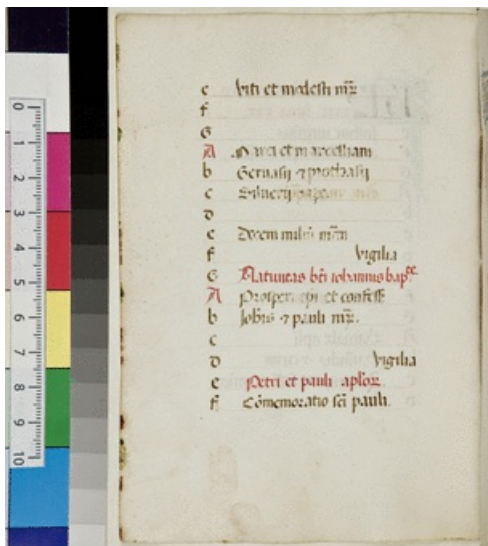 0 1 2 3 4 5 6 7 8 9 10
e Viti et modesti mr̃
f
G
A Marci et marcelliani
b Geruasij ⁊ prothasij
c Siluerij pape
d
e Decem miliũ mr̃m
f Vigilia
G Natiuitas bt̃i iohannis bap^te.
A Prosperi ep̃i et confess̃
b Joh̃is ⁊ pauli mr̃.
c
d Vigilia
e Petri et pauli apl̃oꝝ
f Cõmemoratio sc̃i pauli.